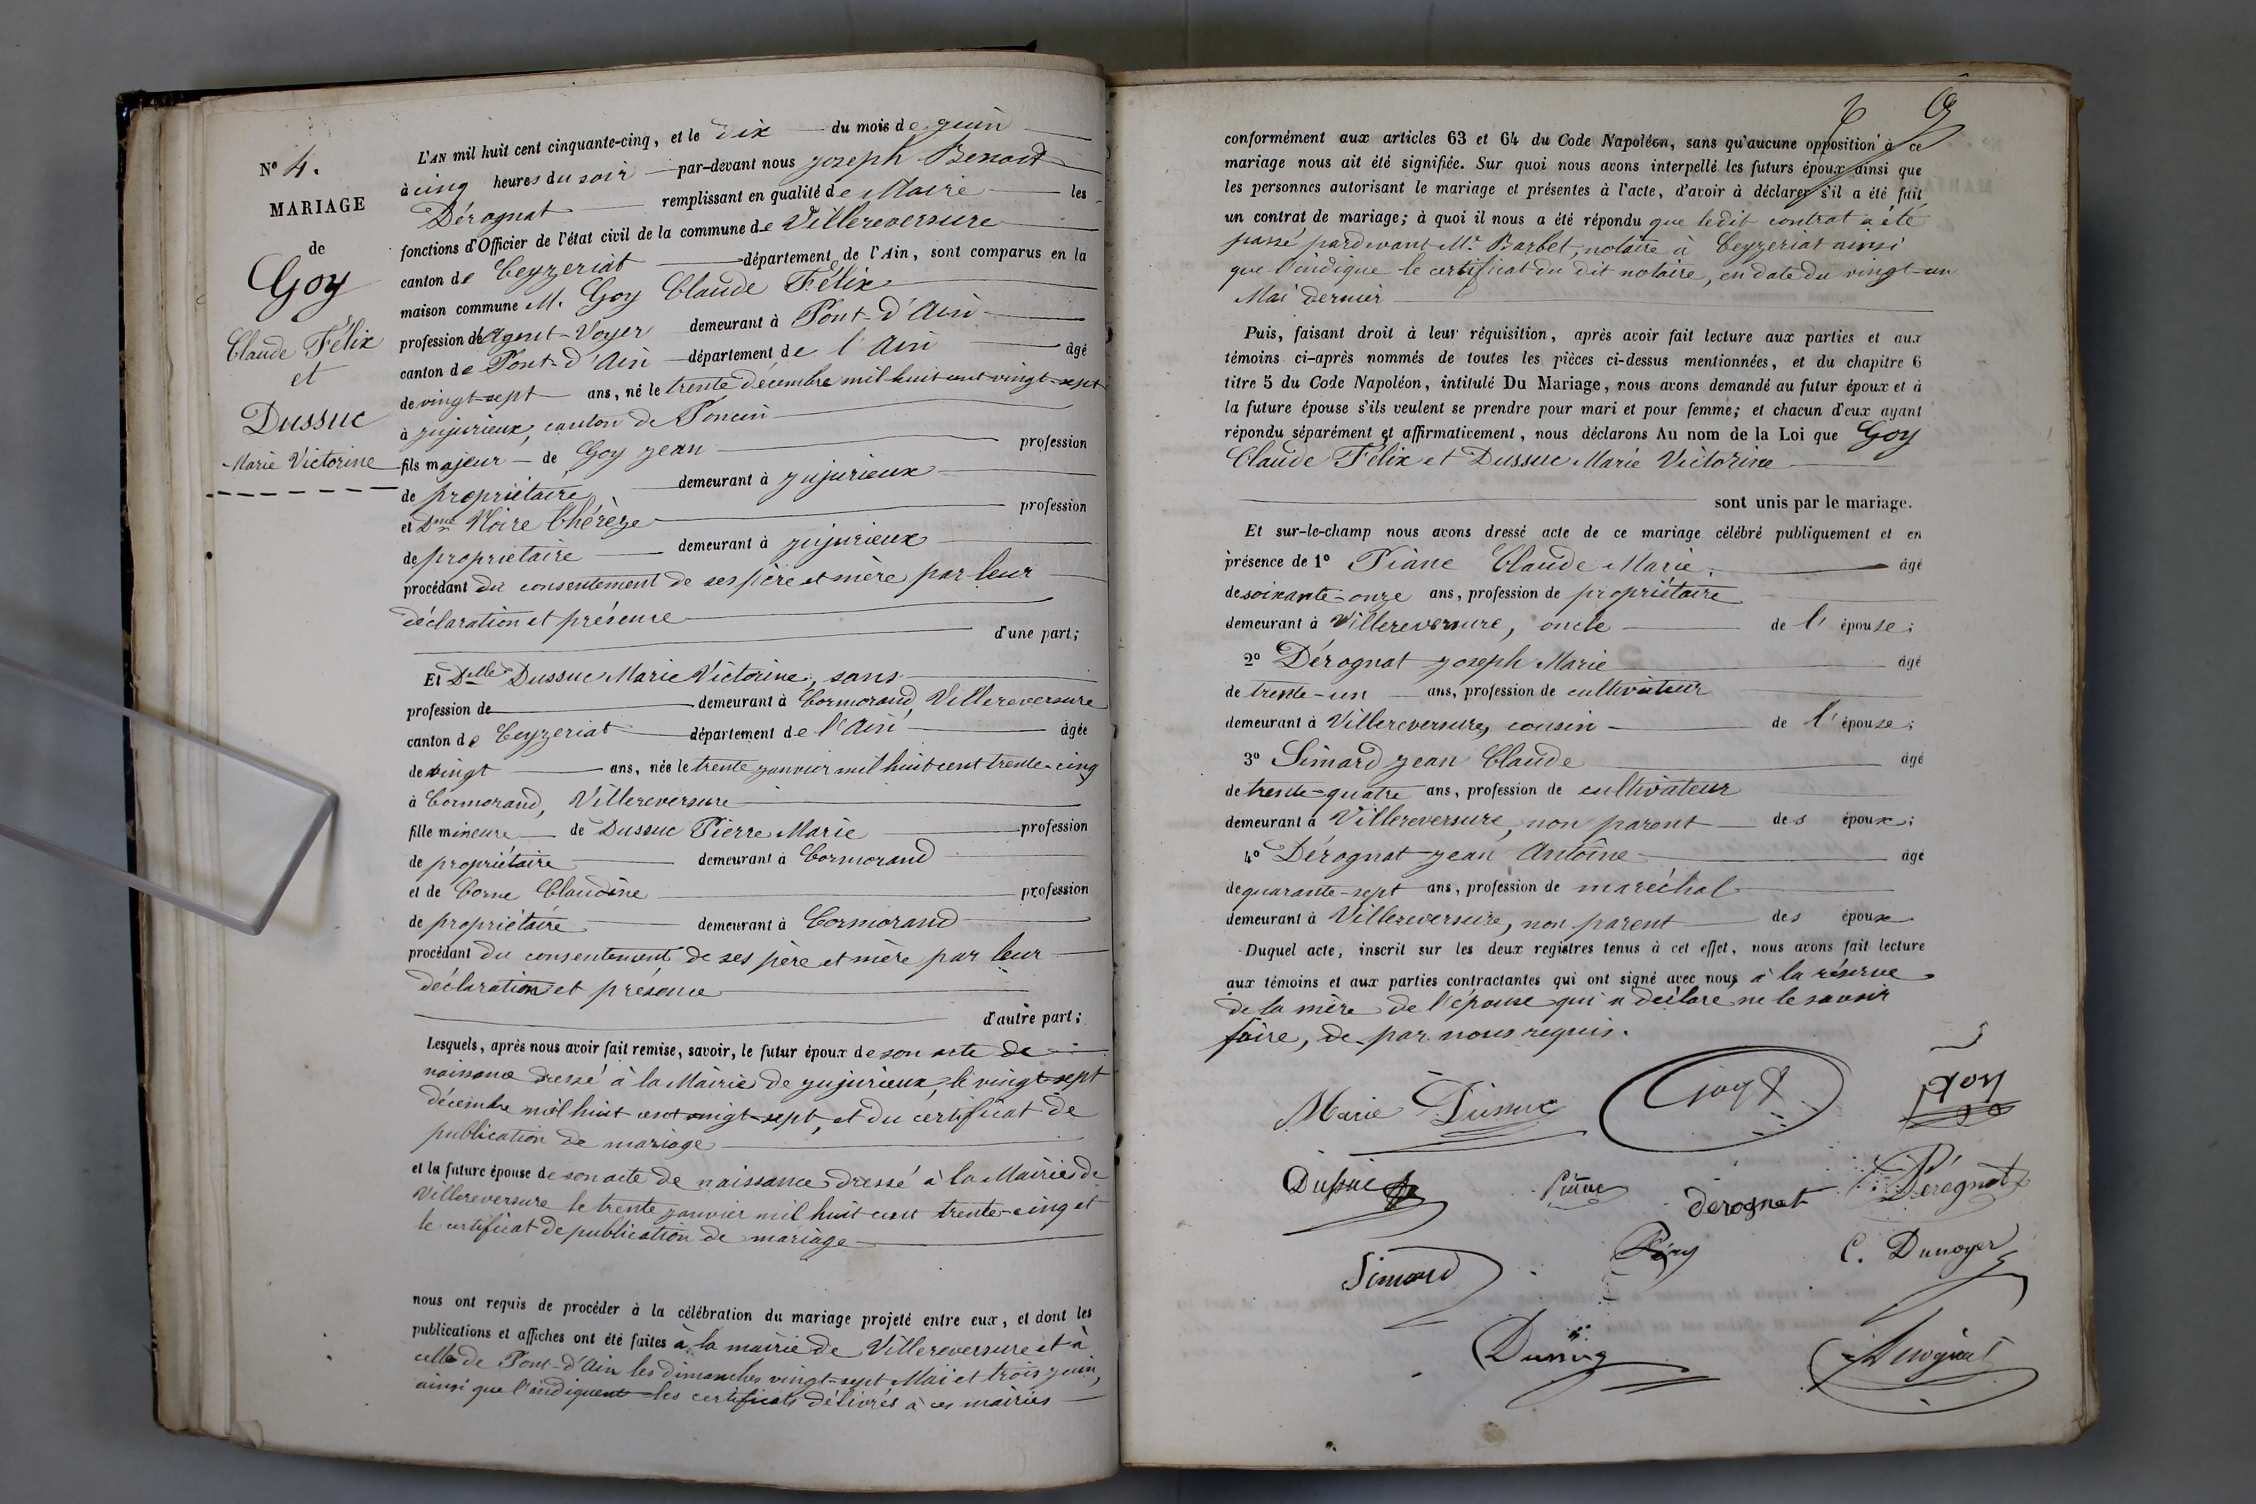 N° 4.
MARIAGE
de
Goy
Claude Félix
et
Dussuc
Marie Victorine
L'AN mil huit cent cinquante-cinq, et le dix du mois de juin
à cinq heures du soir par-devant nous Joseph Benoit
Dérognat remplissant en qualité de Maire les
fonctions d'Officier de l'état civil de la commune de Villereversure
canton de Ceyzeriat département de l'Ain, sont comparus en la
maison commune M. Goy Claude Félix
profession d'Agent-Voyer demeurant à Pont-d'Ain
canton de Pont-d'Ain département de l'Ain âgé
de vingt-sept ans, né le trente décembre mil huit cent vingt-sept
à Jujurieux, canton de Poncin
fils majeur de Goy Jean profession
de propriétaire demeurant à Jujurieux
et Dme Noire Thérèze profession
de propriétaire demeurant à Jujurieux
procédant du consentement de ses père et mère par leur
déclaration et présence
d'une part;
Et Delle Dussuc Marie Victorine, sans
profession de demeurant à Cormorand, Villereversure
canton de Ceyzeriat département de l'Ain âgée
de vingt ans, née le trente janvier mil huit cent trente-cinq
à Cormorand, Villereversure
fille mineure de Dussuc Pierre Marie profession
de propriétaire demeurant à Cormorand
et de Corne Claudine profession
de propriétaire demeurant à Cormorand
procédant du consentement de ses père et mère par leur
déclaration et présence
d'autre part;
Lesquels, après nous avoir fait remise, savoir, le futur époux de son acte de
naissance dressé à la Mairie de Jujurieux, le vingt-sept
décembre mil huit cent vingt-sept, et du certificat de
publication de mariage
et la future épouse de son acte de naissance dressé à la Mairie de
Villereversure le trente janvier mil huit cent trente-cinq et
le certificat de publication de mariage
nous ont requis de procéder à la célébration du mariage projeté entre eux, et dont les
publications et affiches ont été faites à la mairie de Villereversure et à
celle de Pont-d'Ain les dimanches vingt-sept Mai et trois juin,
ainsi que l'indiquent les certificats délivrés à ces mairies
conformément aux articles 63 et 64 du Code Napoléon, sans qu'aucune opposition à ce
mariage nous ait été signifiée. Sur quoi nous avons interpellé les futurs époux ainsi que
les personnes autorisant le mariage et présentes à l'acte, d'avoir à déclarer s'il a été fait
un contrat de mariage; à quoi il nous a été répondu que ledit contrat a été
passé pardevant Me Barbet, notaire à Ceyzeriat ainsi
que l'indique le certificat du dit notaire, en date du vingt-un
Mai dernier
Puis, faisant droit à leur réquisition, après avoir fait lecture aux parties et aux
témoins ci-après nommés de toutes les pièces ci-dessus mentionnées, et du chapitre 6
titre 5 du Code Napoléon, intitulé Du Mariage, nous avons demandé au futur époux et à
la future épouse s'ils veulent se prendre pour mari et pour femme; et chacun d'eux ayant
répondu séparément et affirmativement, nous déclarons Au nom de la Loi que Goy
Claude Félix et Dussuc Marie Victorine
sont unis par le mariage.
Et sur-le-champ nous avons dressé acte de ce mariage célébré publiquement et en
présence de 1° Piane Claude Marie âgé
de soixante-onze ans, profession de propriétaire
demeurant à Villereversure, oncle de l'épouse;
2° Dérognat Joseph Marie âgé
de trente-un ans, profession de cultivateur
demeurant à Villereversure, cousin de l'épouse;
3° Simard Jean Claude âgé
de trente-quatre ans, profession de cultivateur
demeurant à Villereversure, non parent des époux;
4° Dérognat Jean Antoine âgé
de quarante-sept ans, profession de maréchal
demeurant à Villereversure, non parent des époux
Duquel acte, inscrit sur les deux registres tenus à cet effet, nous avons fait lecture
aux témoins et aux parties contractantes qui ont signé avec nous à la réserve
de la mère de l'épouse qui a déclaré ne le savoir
faire, de par nous requis.
Marie Dussuc Goy goy
Dussuc Dérognat Dérognat
Simard C. Dunoyer
Dérognat